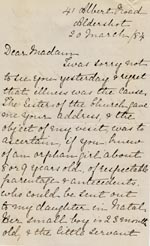 41 Albert Road
Aldershot
20 March /84
Dear Madam,
I was sorry not
to see you yesterday & regret
that illness was the cause.
The Sister of the Church gave
me your address, & the
object of my visit, was to
ascertain if you knew
of an orphan girl about
8 or 9 years old, of respectable
parentage & antecedents,
who could be sent out
to my daughter in Natal,
Her small boy is 23 months
old, & the little servant